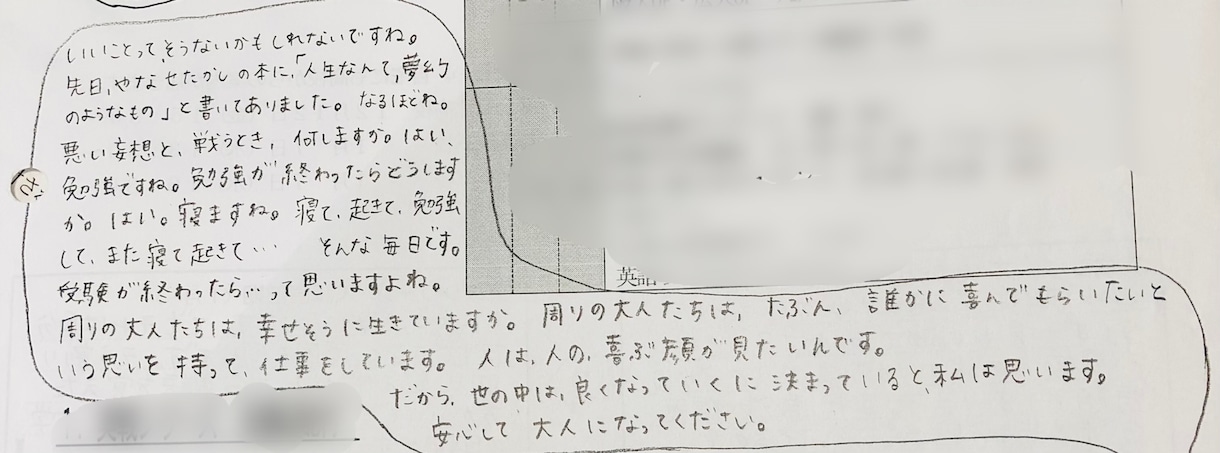 いいことって、そうないかもしれないですね。
先日、やなせたかしの本に、「人生なんて、夢幻
のようなもの」と書いてありました。なるほどね。
悪い妄想と、戦うとき、何しますか。はい、
勉強ですね。勉強が終わったらどうします
か。はい。寝ますね。寝て、起きて、勉強
して、また寝て起きて… そんな毎日です。
受験が終わったら…って思いますよね。
英語
周りの大人たちは、幸せそうに生きていますか。周りの大人たちは、たぶん、誰かに喜んでもらいたいと
いう思いを持って、仕事をしています。人は、人の、喜ぶ顔が見たいんです。
だから、世の中は、良くなっていくに決まっていると、私は思います。
安心して大人になってください。